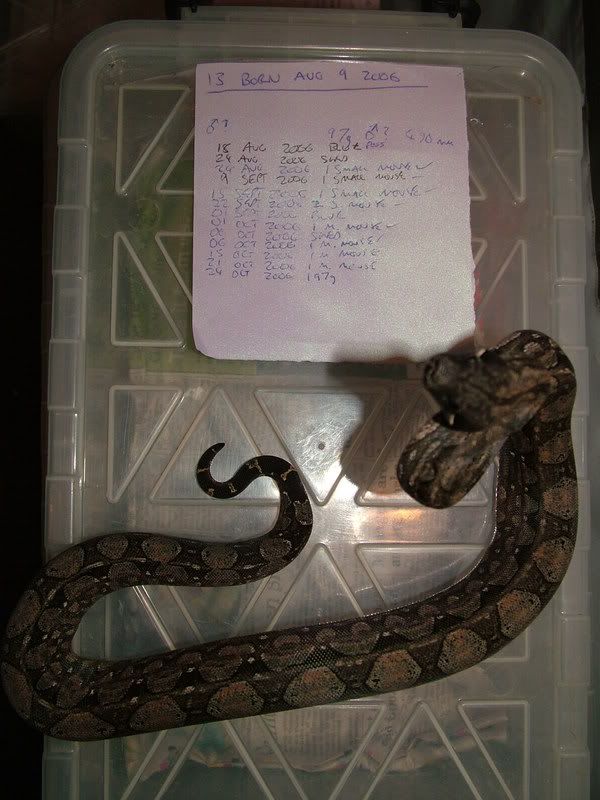 13 BORN AUG 9 2006
♂?
97g ♂? 490 mm
18 AUG 2006 BLUE POSS
24 AUG 2006 SHED
24 AUG 2006 1 SMALL MOUSE ✓
9 SEPT 2006 1 SMALL MOUSE –
15 SEPT 2006 1 SMALL MOUSE
22 SEPT 2006 2 S. MOUSE –
01 2006 BLUE
01 OCT 2006 1 M. MOUSE ✓
06 OCT 2006 SHED
06 OCT 2006 1 M. MOUSE ✓
15 OCT 2006 1 M MOUSE
21 OCT 2006 1 M. MOUSE
24 OCT 2006 197g